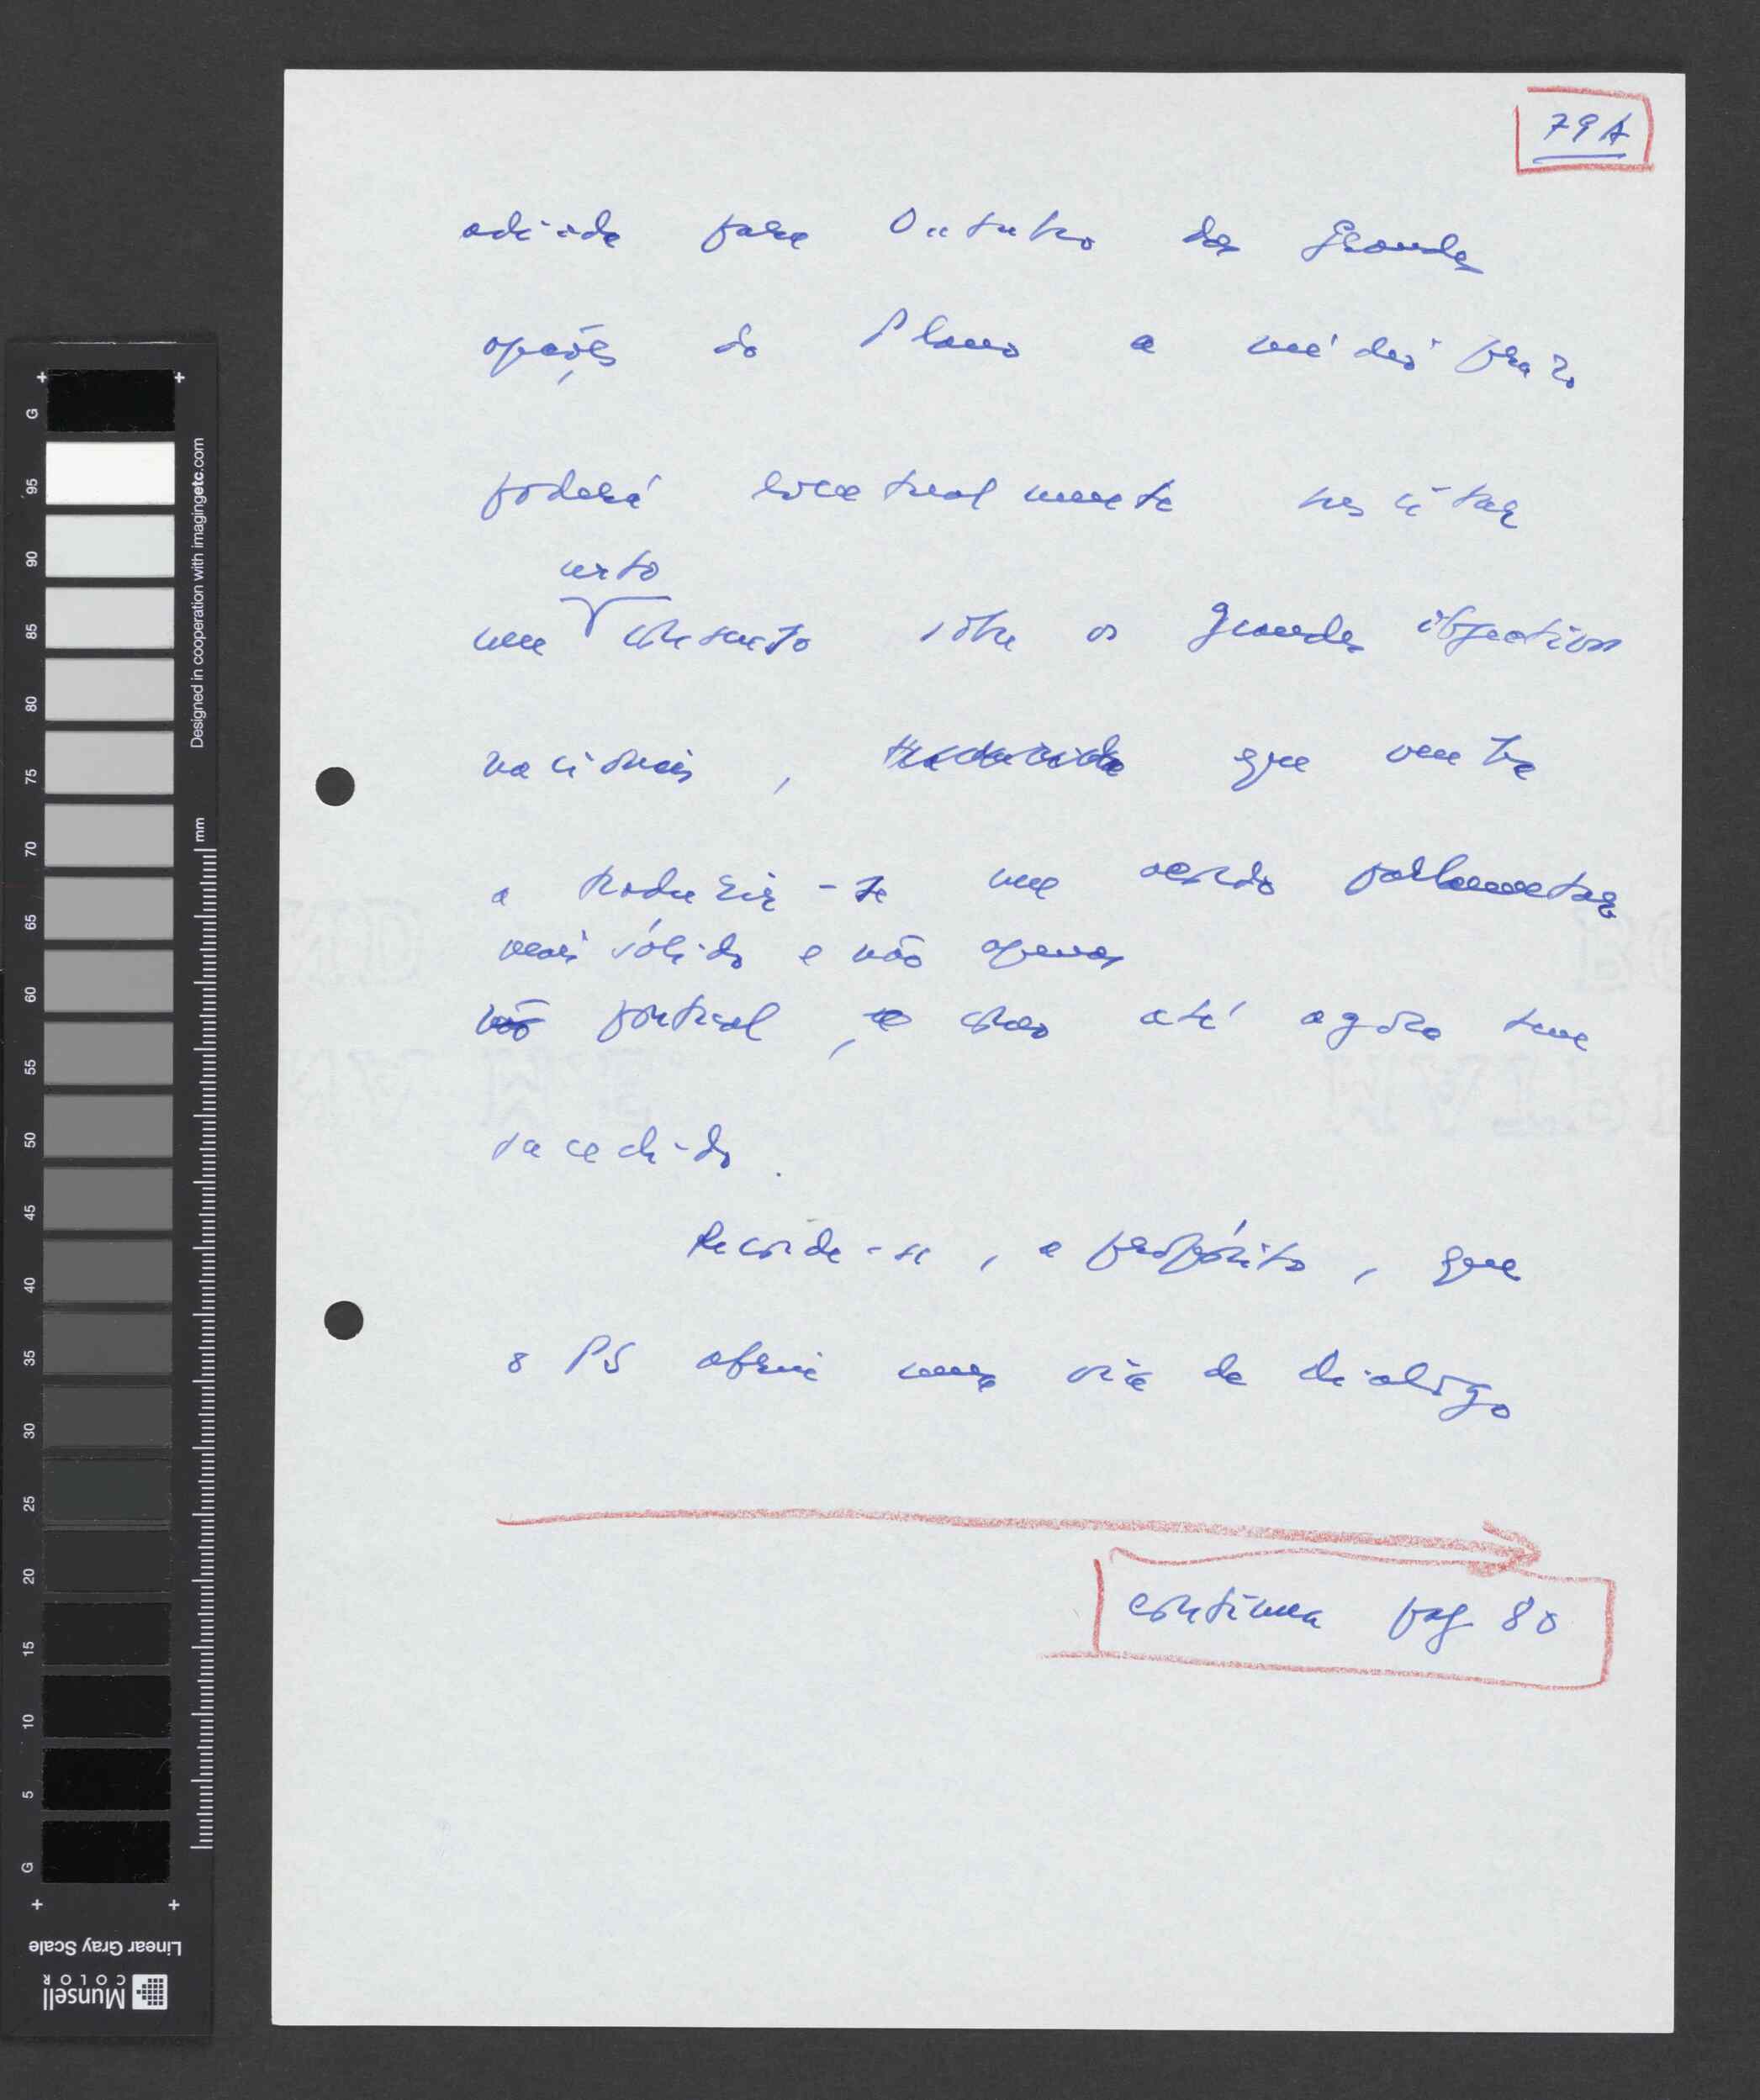 79A
adiada para Outubro das Grandes
opções do Plano a médio prazo
poderá eventualmente suscitar
certo
um consenso sobre os grandes objectivos
nacionais, que venha
a traduzir-se num acordo parlamentar
mais sólido e não apenas
não pontual, como até agora tem
sucedido.
Recorde-se, a propósito, que
o PS abriu uma via de dialogo
continua pag 80
+ +
G
95
90
85
80
75
70
65
60
55
50
45
40
35
30
25
20
15
10
5
G
+ +
mm
Designed in cooperation with imagingetc.com
Linear Gray Scale
Munsell
COLOR